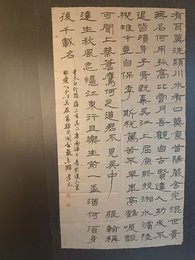 有耳莫洗潁川水有口莫食首陽蕨含光混世貴
無名何用孤高比雲月吾觀自古賢達人功成不
退皆殞身子胥既棄吳江上屈原終投湘水濱陸
機雄才豈自保李斯稅駕苦不早華亭鶴唳詎
可聞上蔡蒼鷹何足道君不見吳中張翰稱
達生秋風忽憶江東行且樂生前一盃酒何須身
後千載名
李太白行路難